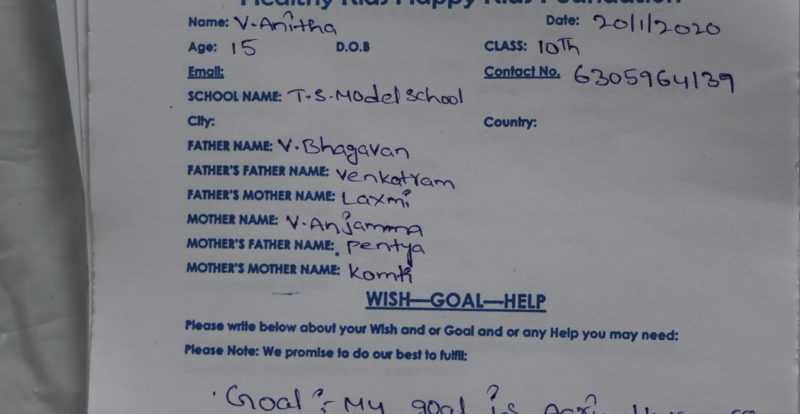 Healthy Kids Happy Kids Foundation
Name: V.Anitha Date: 20/1/2020
Age: 15 D.O.B CLASS: 10Th
Email: Contact No. 6305964139
SCHOOL NAME: T.S.Model School
City: Country:
FATHER NAME: V.Bhagavan
FATHER'S FATHER NAME: Venkatram
FATHER'S MOTHER NAME: Laxmi
MOTHER NAME: V.Anjamma
MOTHER'S FATHER NAME: Pentya
MOTHER'S MOTHER NAME: Komti
WISH—GOAL—HELP
Please write below about your Wish and or Goal and or any Help you may need:
Please Note: We promise to do our best to fulfil:
Goal :- My goal is